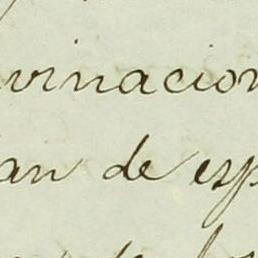 vinacion
an de esp